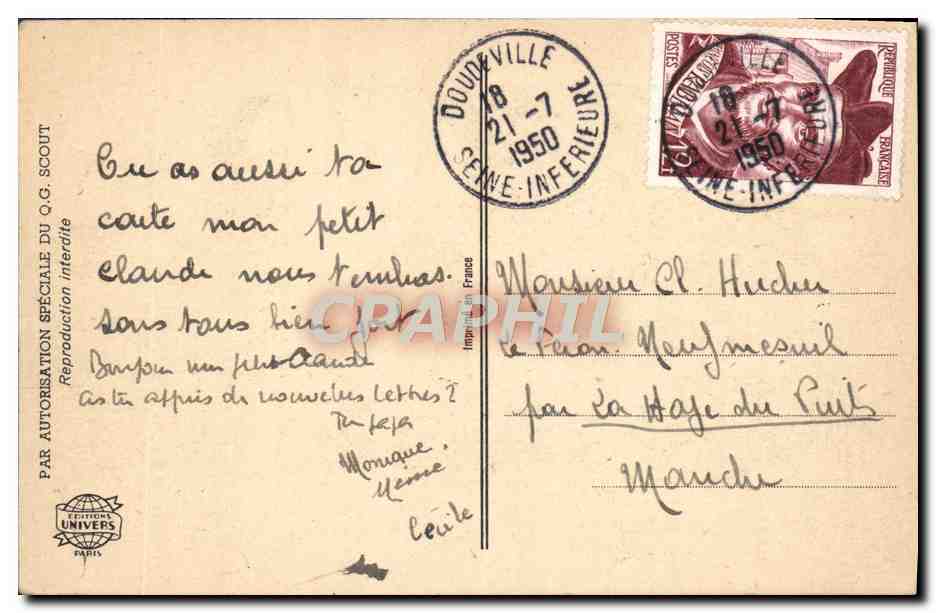 PAR AUTORISATION SPÉCIALE DU Q.G. SCOUT
Reproduction interdite
Tu as aussi ta
carte mon petit
claude nous t'embras-
sons tous bien fort
Bonjour mon petit Claude
as tu appris de nouvelles lettres ?
Ton papa
Monique.
Cécile
EDITIONS
UNIVERS
PARIS
Imprimé en France
DOUDEVILLE
18
21 -7
1950
SEINE-INFÉRIEURE
18
21 -7
1950
SEINE-INFÉRIEURE
POSTES
RÉPUBLIQUE
FRANÇAISE
Monsieur Cl.
Neufmesnil
par La Haye du Puits
Manche
CPAPHIL